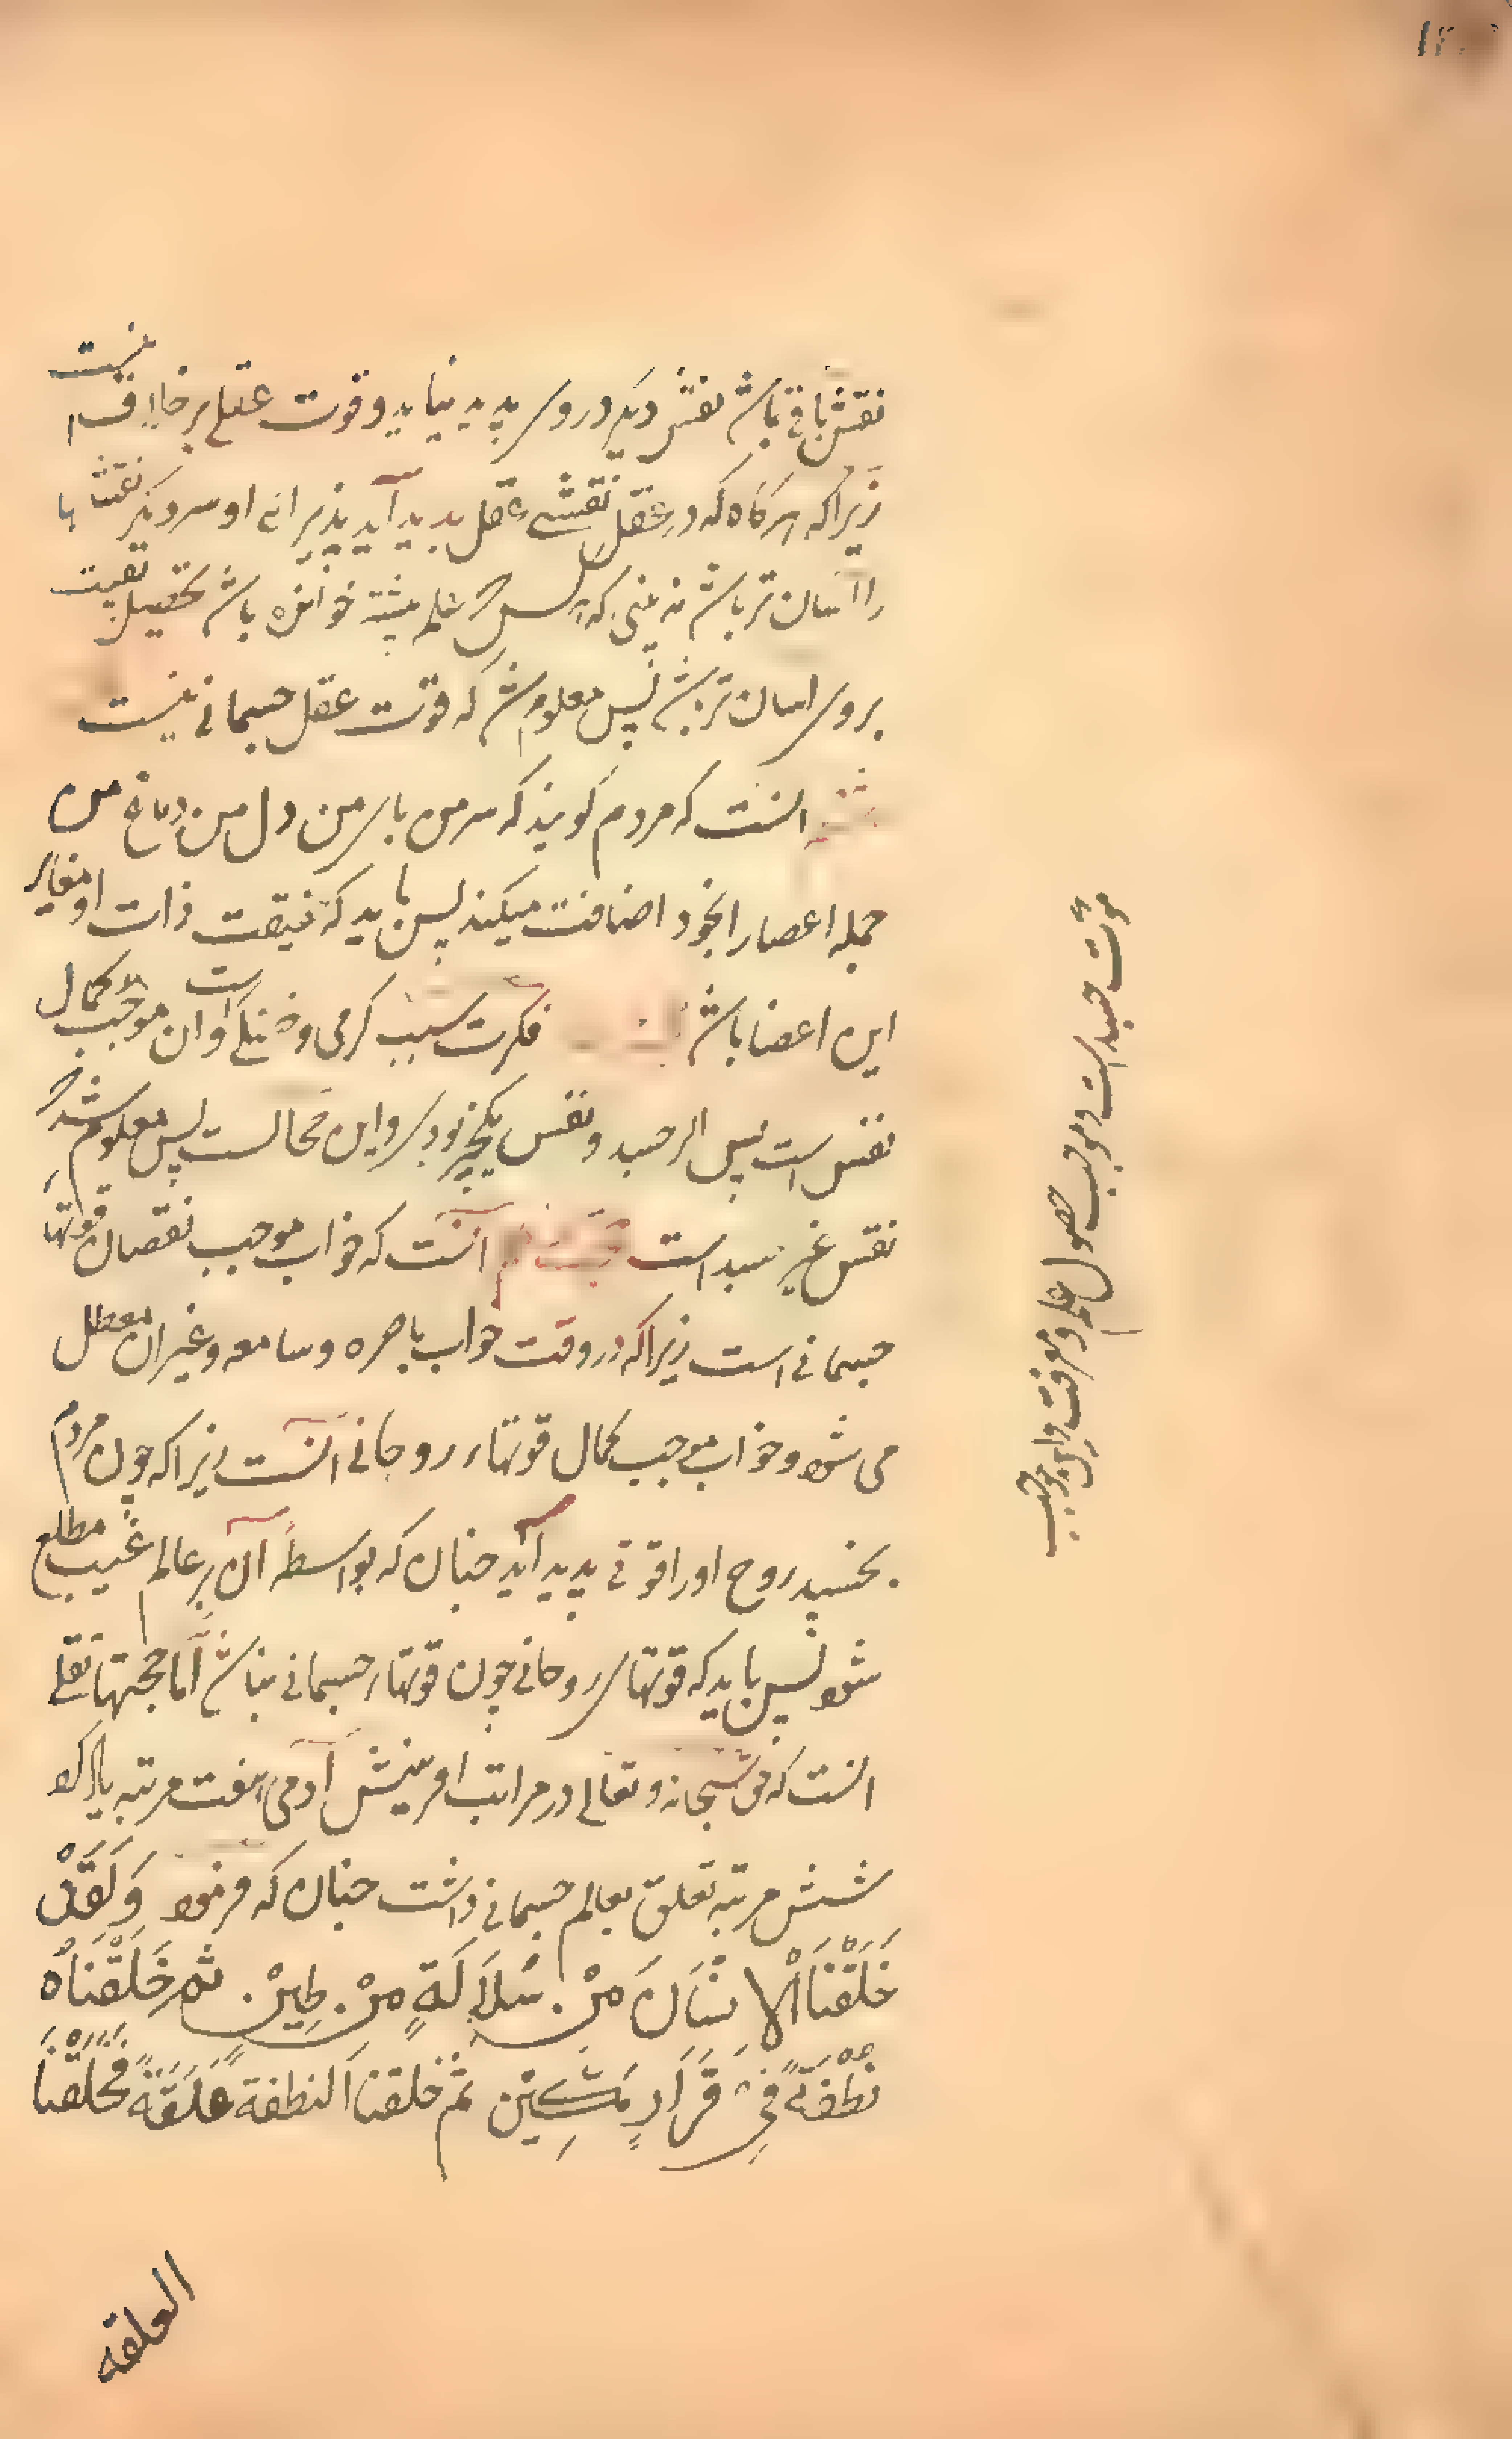 نقش باقی باشد نقش دیگر در وی پدید نیاید و قوت عقلی بر خلاف اینست
زیرا که هر کاه که در عقل نقشے عقل پدید آید پذیرائی او مر دیگر نقشها
را آسان تر باشد نه بینی که هر کس که علم بیشتر خوانده باشد تحصیل بقیت
بر وی اسان تر باشد پس معلوم شد که قوت عقل جسمانی نیست
انست که مردم کویند که سر من پای من دل من دماغ من
جمله اعضا را بخود اضافت میکند پس باید که حقیقت ذات او مغایر
این اعضا باشد فکرت سبب کرمی و خشکی است و ان موجب کمال
نفس است پس اگر جسد و نفس یکچیز بودی و این محالست پس معلوم شد که
نفس غیر جسد است حجت انست که خواب موجب نقصان قوتهاء
جسمانی است زیرا که در وقت خواب باصره و سامعه و غیر ان معطل
می شود و خواب موجب کمال قوتهاء روحانی انست زیرا که چون مردم
بخسپد روح او را قوتی پدید آید چنان که بواسطه آن بر عالم غیب مطلع
شود پس باید که قوتهای روحانی چون قوتهاء جسمانی نباشد اما حجتهاء نقلی
انست که حق سبحانه و تعالی در مراتب افرینش آدمی هفت مرتبه یاد کرد
شش مرتبه تعلق بعالم جسمانی داشت چنان که فرمود وَلَقَدْ
خَلَقْنَا الْاِنْسَانَ مِنْ سُلَالَةٍ مِنْ طِیْنٍ ثم خَلَقْنَاهُ
نُطْفَةً فِی قَرَارٍ مَکِیْنٍ ثُمَّ خلقنا النطفة عَلَقَةً فَخَلَقْنَا
العلقه
موت جسد است و موجب حصول علم و معرفت و این موجب